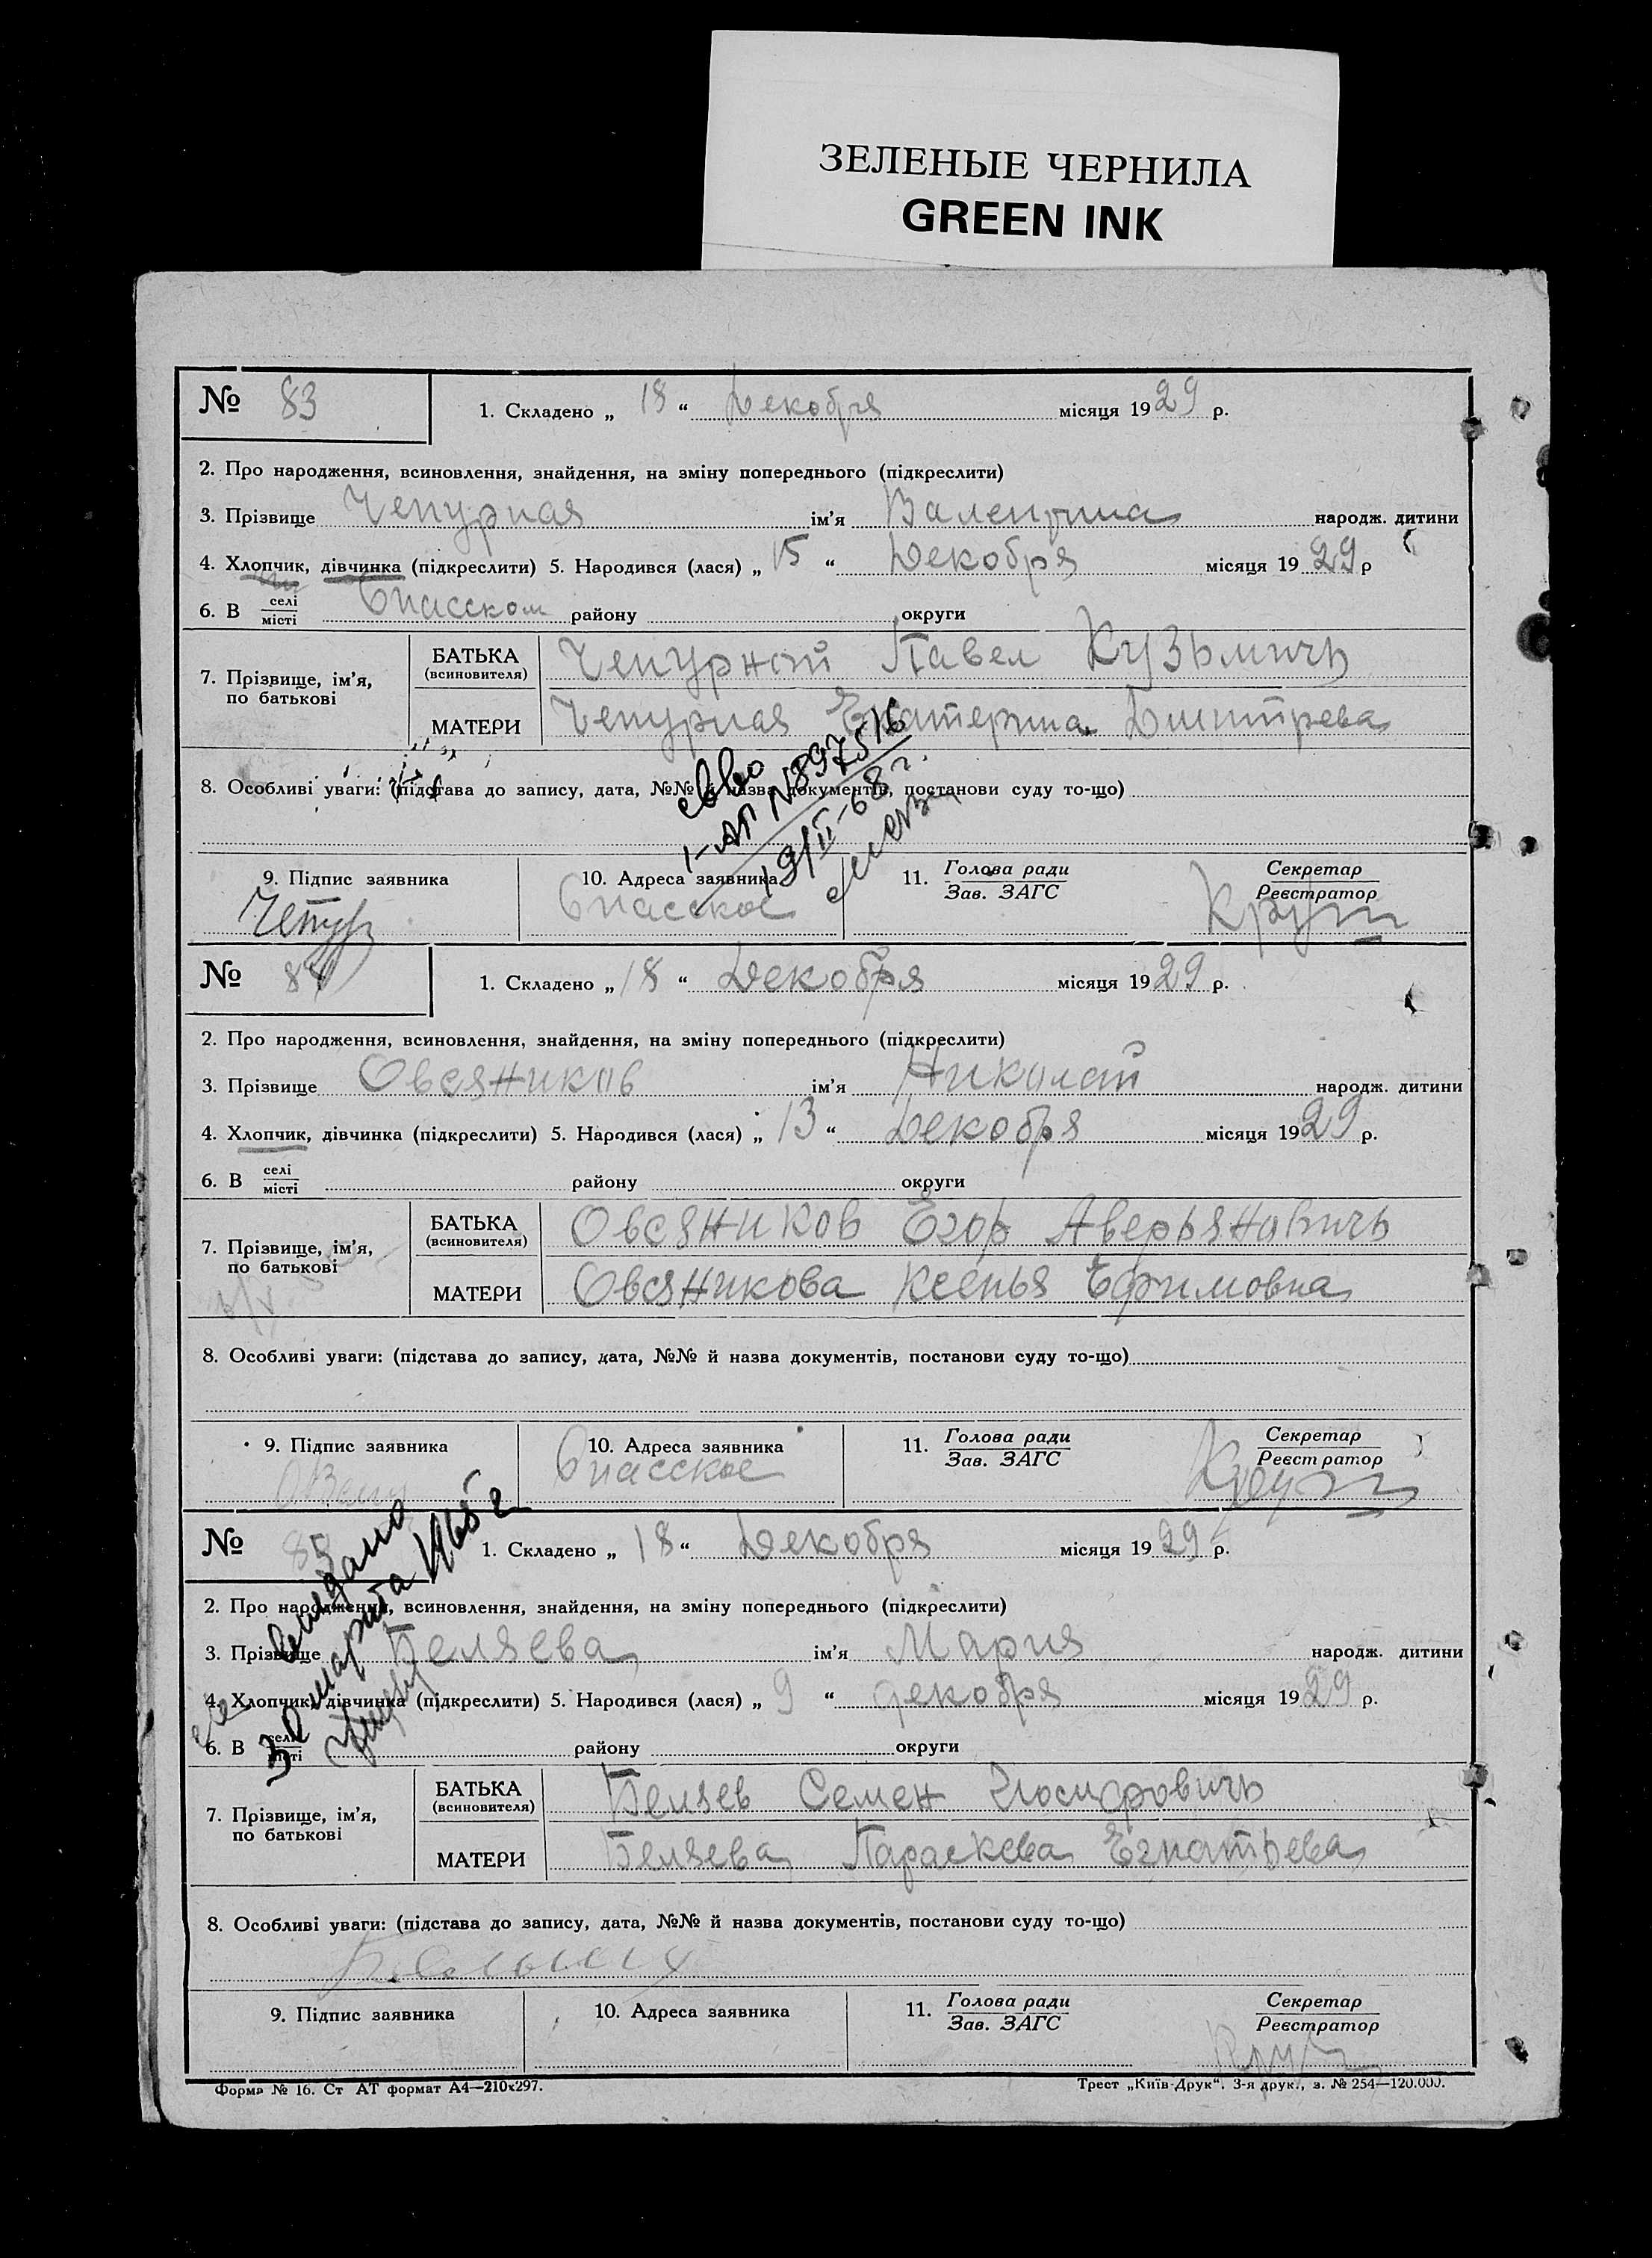 ЗЕЛЕНЫЕ ЧЕРНИЛА
GREEN INK
№ 83 1. Складено „ 18 “ Декобря місяця 1929 р.
2. Про народження, всиновлення, знайдення, на зміну попереднього (підкреслити)
3. Прізвище Чепурная ім’я Валентина народж. дитини
4. Хлопчик, дівчинка (підкреслити) 5. Народився (лася) „ 15 “ Декобря місяця 1929 р
6. В селі місті Спасском району округи
7. Прізвище, ім’я, по батькові БАТЬКА (всиновителя) Чепурной Павел Кузьмичь
МАТЕРИ Чепурная Екатерина Дмитрева
8. Особливі уваги: (підстава до запису, дата, №№ й назва документів, постанови суду то-що)
св-во
1-АП №897516
19/II-68 г.
9. Підпис заявника 10. Адреса заявника 11. Голова ради Зав. ЗАГС Секретар Реєстратор
Чепур Спасское
№ 84 1. Складено „ 18 “ Декобря місяця 1929 р.
2. Про народження, всиновлення, знайдення, на зміну попереднього (підкреслити)
3. Прізвище Овсяников ім’я Николай народж. дитини
4. Хлопчик, дівчинка (підкреслити) 5. Народився (лася) „ 13 “ Декобря місяця 1929 р.
6. В селі місті району округи
7. Прізвище, ім’я, по батькові БАТЬКА (всиновителя) Овсяников Егор Аверьяновичь
МАТЕРИ Овсяникова Ксенья Ефимовна
8. Особливі уваги: (підстава до запису, дата, №№ й назва документів, постанови суду то-що)
9. Підпис заявника 10. Адреса заявника 11. Голова ради Зав. ЗАГС Секретар Реєстратор
Спасское
№ 85 1. Складено „ 18 “ Декобря місяця 1929 р.
2. Про народження, всиновлення, знайдення, на зміну попереднього (підкреслити)
3. Прізвище Беляева ім’я Мария народж. дитини
4. Хлопчик, дівчинка (підкреслити) 5. Народився (лася) „ 9 “ декобря місяця 1929 р.
6. В селі місті району округи
выдано
30 марта 1965 г
7. Прізвище, ім’я, по батькові БАТЬКА (всиновителя) Беляев Семен Иосифовичь
МАТЕРИ Беляева Параскева Егнатьева
8. Особливі уваги: (підстава до запису, дата, №№ й назва документів, постанови суду то-що)
9. Підпис заявника 10. Адреса заявника 11. Голова ради Зав. ЗАГС Секретар Реєстратор
Форма № 16. Ст АТ формат А4—210х297. Трест „Київ-Друк“. 3-я друк., з. № 254—120.000.